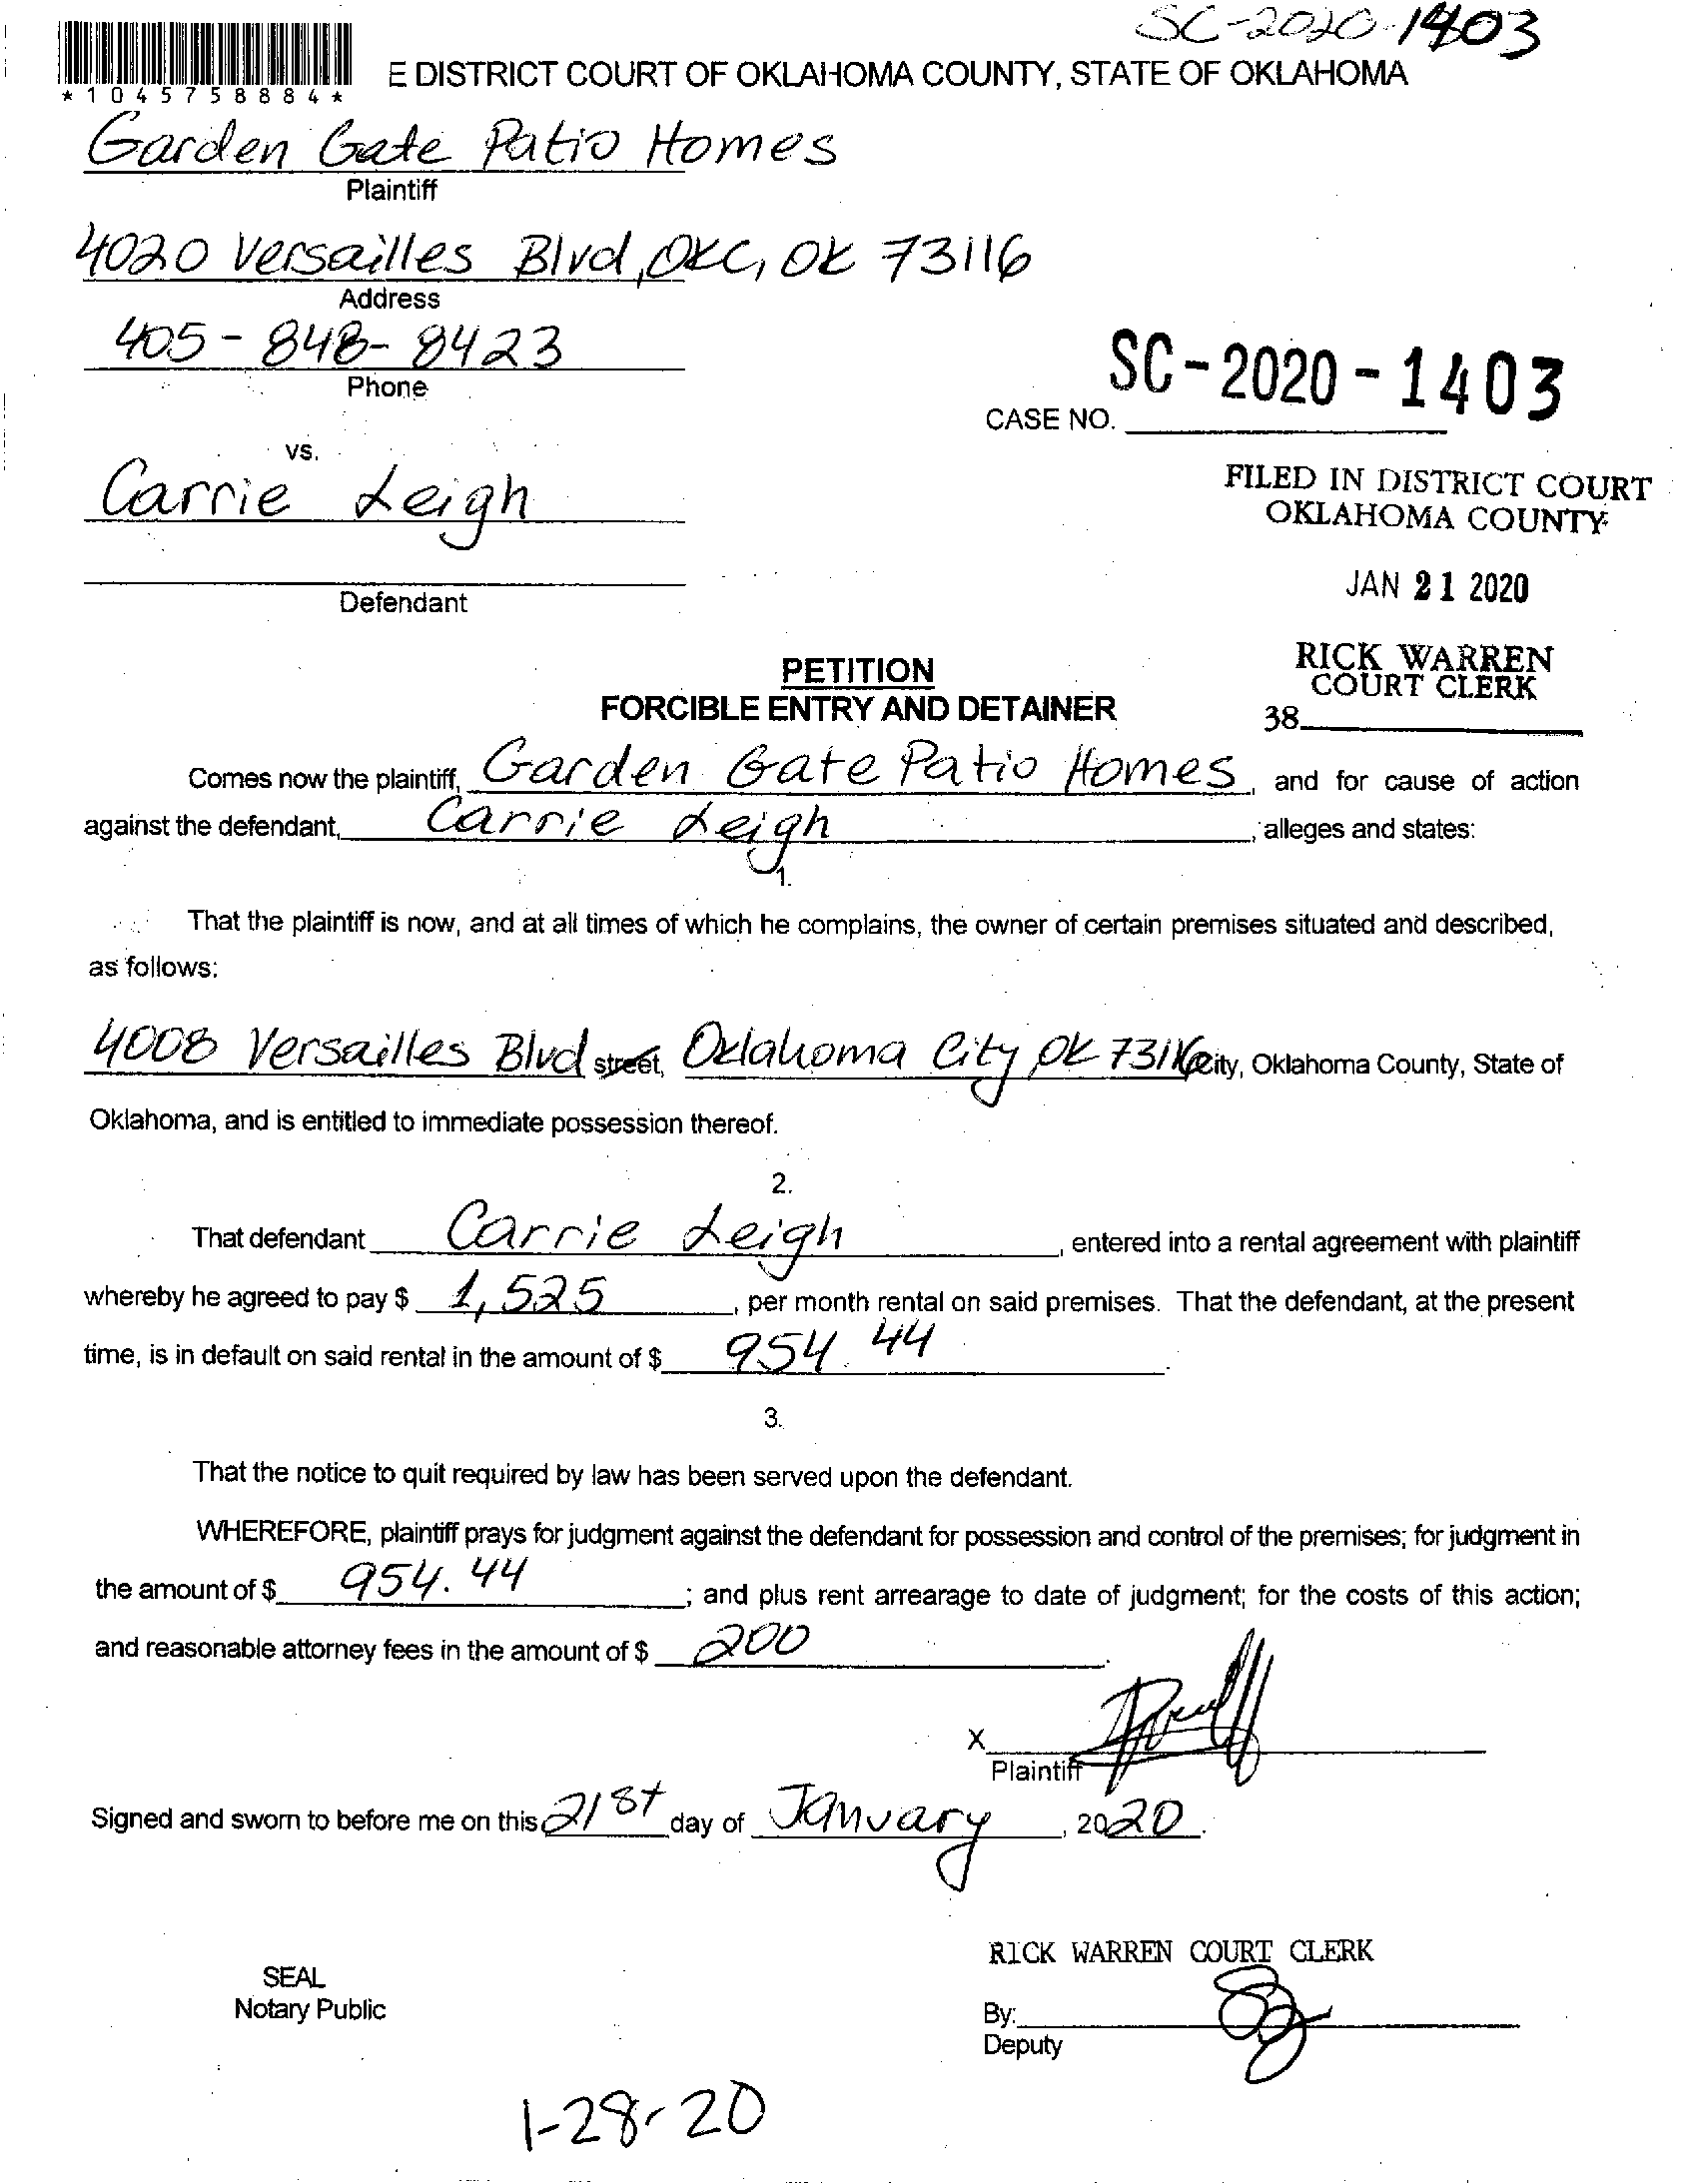 SC-2020-1403
E DISTRICT COURT OF OKLAHOMA COUNTY, STATE OF OKLAHOMA
*1045758884*
Garden Gate Patio Homes
Plaintiff
4020 Versailles Blvd, OKC, OK 73116
Address
405-848-8423
Phone
SC-2020-1403
CASE NO.
vs.
Carrie Leigh
Defendant
FILED IN DISTRICT COURT
OKLAHOMA COUNTY
JAN 21 2020
RICK WARREN
COURT CLERK
38
PETITION
FORCIBLE ENTRY AND DETAINER
Comes now the plaintiff, Garden Gate Patio Homes, and for cause of action
against the defendant, Carrie Leigh, alleges and states:
1.
That the plaintiff is now, and at all times of which he complains, the owner of certain premises situated and described,
as follows:
4008 Versailles Blvd street, Oklahoma City OK 73116 city, Oklahoma County, State of
Oklahoma, and is entitled to immediate possession thereof.
2.
That defendant Carrie Leigh, entered into a rental agreement with plaintiff
whereby he agreed to pay $ 1,525, per month rental on said premises. That the defendant, at the present
time, is in default on said rental in the amount of $ 954.44.
3.
That the notice to quit required by law has been served upon the defendant.
WHEREFORE, plaintiff prays for judgment against the defendant for possession and control of the premises; for judgment in
the amount of $ 954.44; and plus rent arrearage to date of judgment; for the costs of this action;
and reasonable attorney fees in the amount of $ 200.
X
Plaintiff
Signed and sworn to before me on this 21st day of January, 2020.
RICK WARREN COURT CLERK
SEAL
Notary Public
By:
Deputy
1-28-20